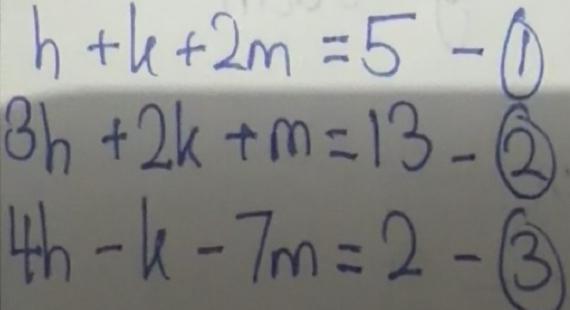 h + k + 2m = 5 - ①
3h + 2k + m = 13 - ②
4h - k - 7m = 2 - ③